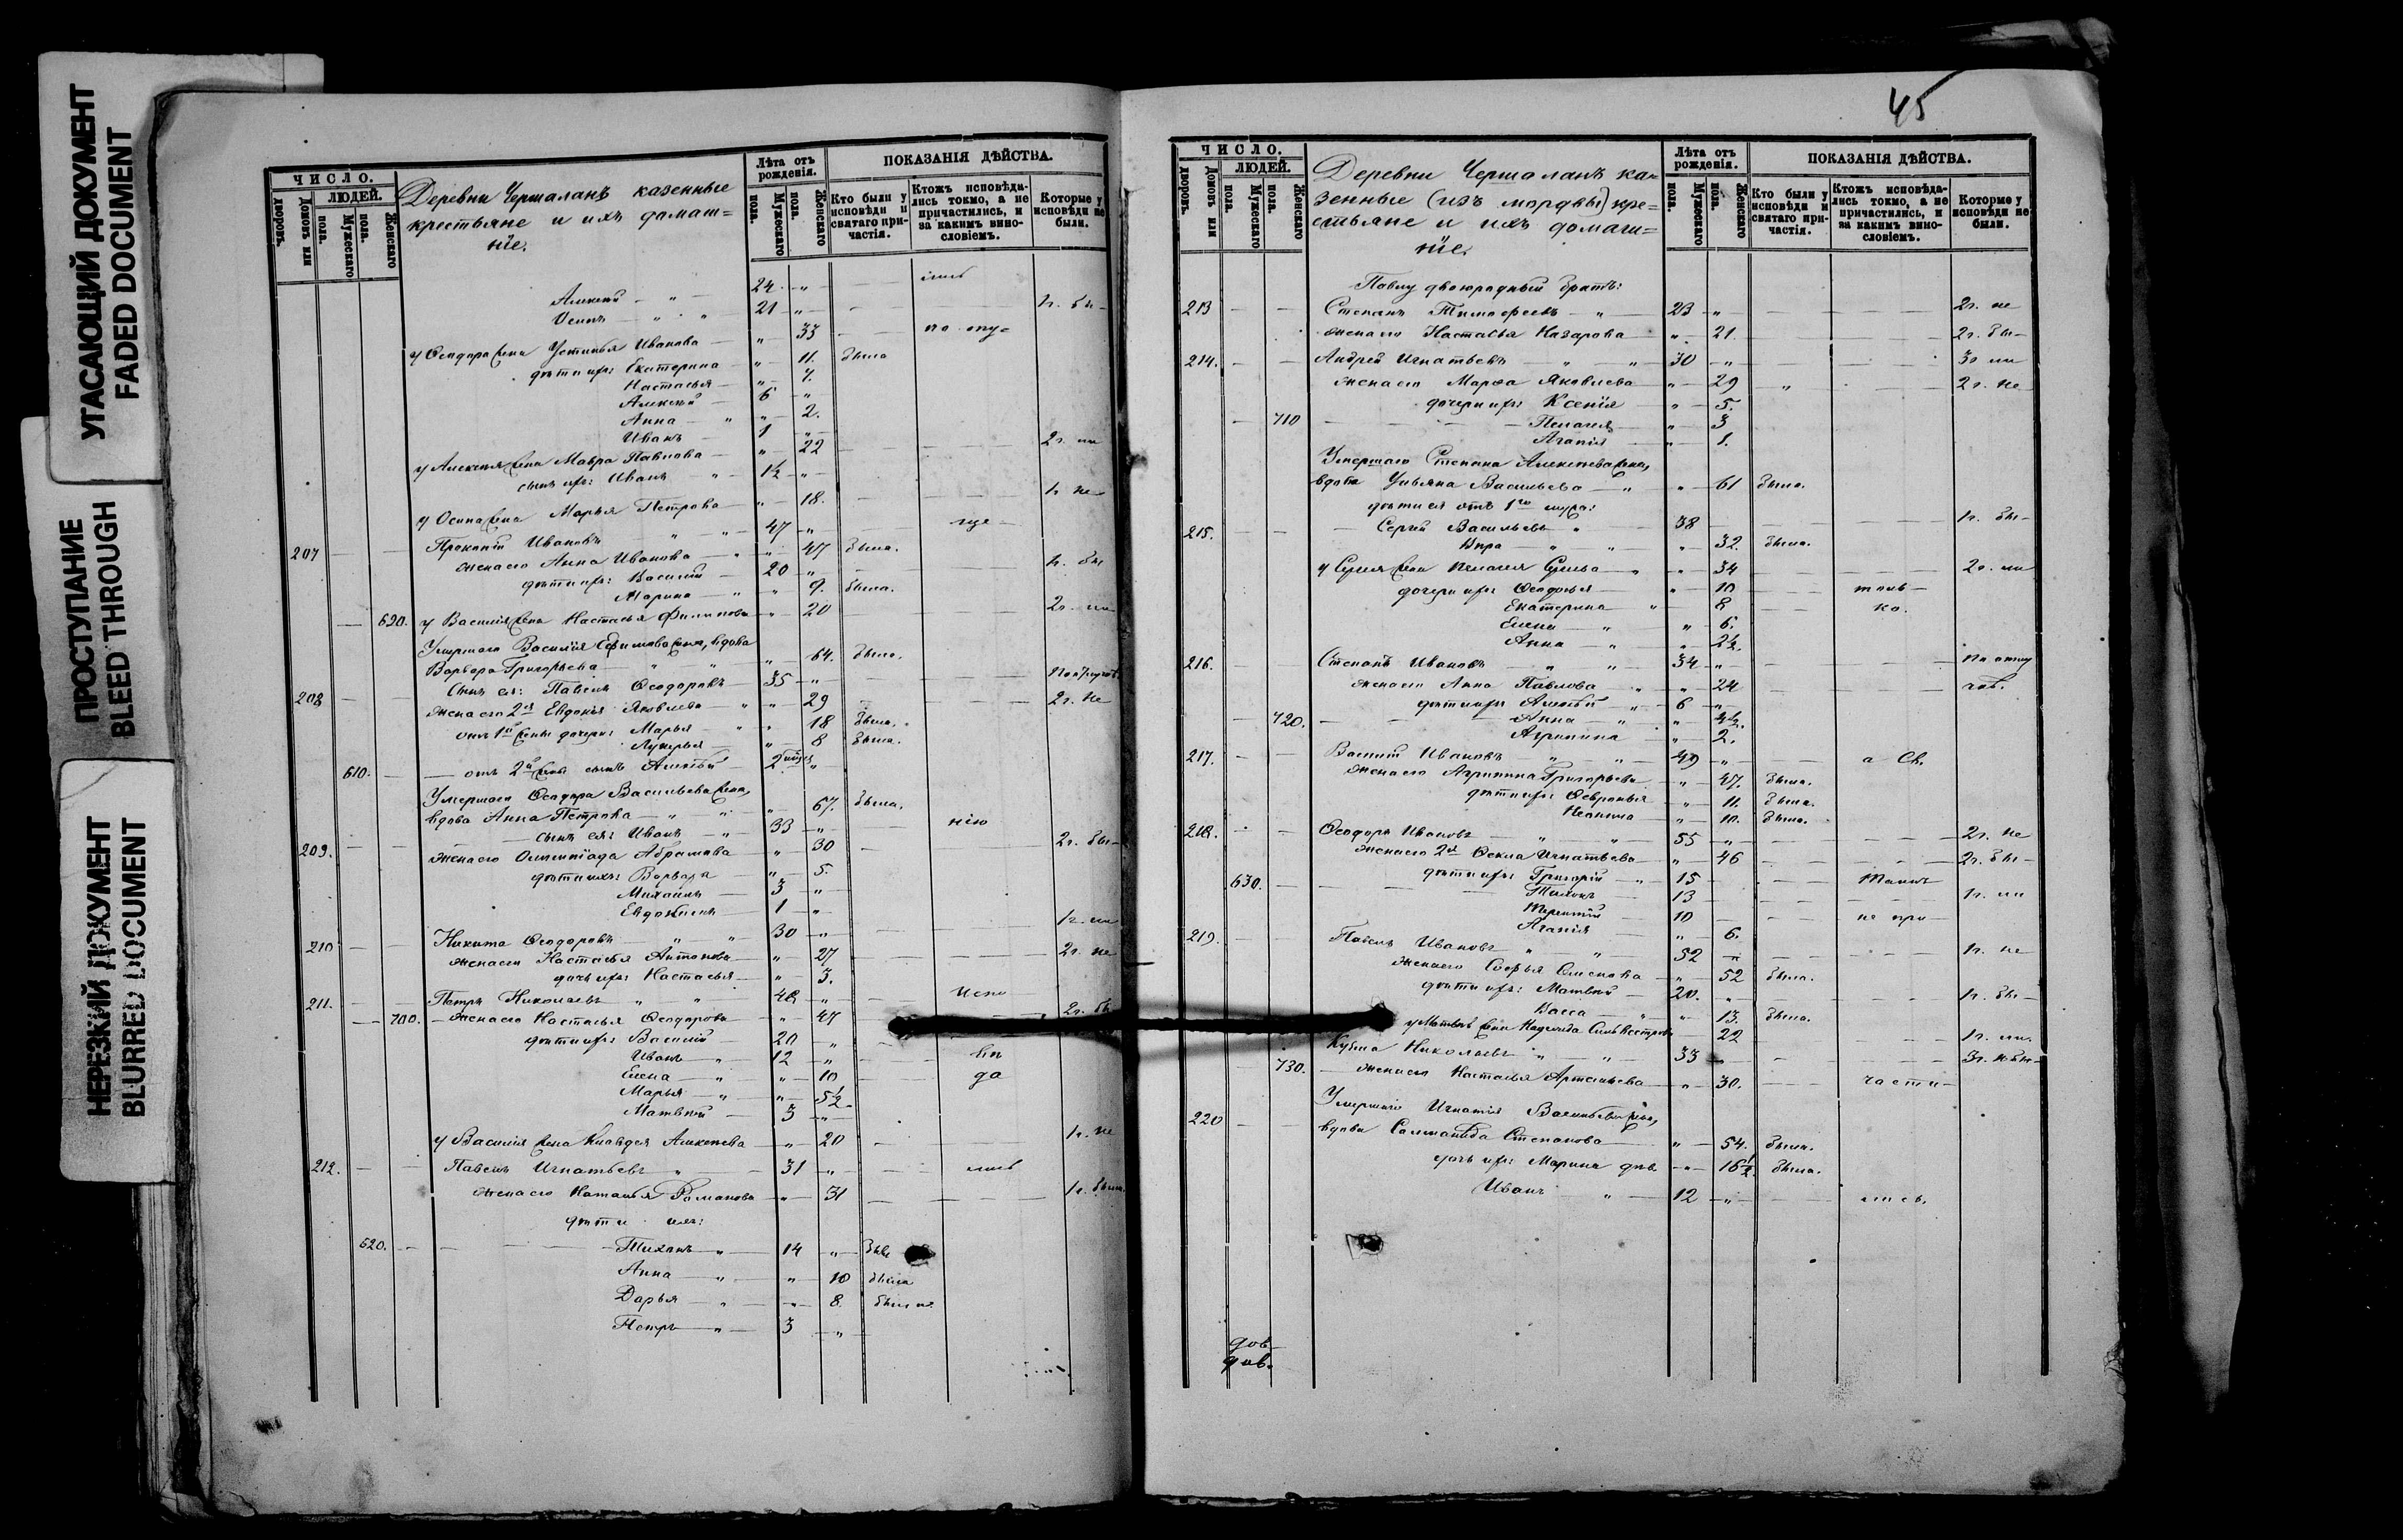 УГАСАЮЩИЙ ДОКУМЕНТ
FADED DOCUMENT
ПРОСТУПАНИЕ
BLEED THROUGH
НЕРЕЗКИЙ ДОКУМЕНТ
BLURRED DOCUMENT
ЧИСЛО.
ЛЮДЕЙ.
Домовъ или дворовъ.
Мужескаго пола.
Женскаго пола.
Деревни Чершаланъ казенные
крестьяне и ихъ домаш=
ніе.
Лѣта отъ рожденія.
Мужескаго пола.
Женскаго пола.
ПОКАЗАНІЯ ДѢЙСТВА.
Кто были у исповѣди и святаго причастія.
Ктожъ исповѣдались токмо, а не причастились, и за какимъ винословіемъ.
Которые у исповѣди не были.
Алексѣй — „ — 24 — „
Осипъ — „ „ 21 — „
у Ѳеодора жена Устинья Иванова — „ — 33
дѣти ихъ: Екатерина — „ — 11. была
Настасья — „ — 7.
Алексѣй — 6 — „
Анна — „ „ — 2.
Иванъ — 1 — „
у Алексѣя жена Мавра Павлова — „ — 22
сынъ ихъ: Иванъ — „ — 1½ — „
у Осипа жена Марья Петрова — „ — 18.
207 Прокопій Ивановъ „ „ 47 — „
жена его Анна Иванова — „ — 47 была.
дѣти ихъ: Василій — 20 — „
Марина — „ „ 9. была.
690. у Василія жена Настасья Филипова — „ — 20
Умершаго Василія Ефимова жена, вдова
Варвара Григорьева „ „ „ — 64. была.
208 сынъ ея: Павелъ Ѳеодоровъ — 35 — „
жена его 2я Евдокія Яковлева — „ — 29 2г. не
отъ 1й жены дочери: Марья — „ „ 18 была.
Лукерья — „ — 8 была.
610. — отъ 2й жены сынъ Алексѣй — 2 „
Умершаго Ѳеодора Васильева жена,
вдова Анна Петрова — „ „ „ — 67. была.
209. — сынъ ея: Иванъ — „ — 33 — „
жена его Олимпіада Абрамова „ — 30 2г. бы-
дѣти ихъ: Варвара — „ — 5.
Михаилъ — 3 — „
Евдокимъ — 1 — „
210 Никита Ѳеодоровъ „ „ 30 — „
жена его Настасья Антонова — „ — 27 2г. не
дочь ихъ: Настасья — „ — 3.
211. Петръ Николаевъ „ „ 48 — „ испо
700. — жена его Настасья Ѳеодорова „ — 47
дѣти ихъ: Василій — 20 — „
Иванъ — „ — 12 — „ вѣ
Елена — „ „ — 10 да
Марья — „ „ — 5½
Матвѣй — 3 — „
у Василія жена Клавдія Алексѣева „ — 20 1г. не
212. Павелъ Игнатьевъ „ — 31 — „
жена его Наталья Романова — „ — 31 1г. были.
дѣти ихъ:
620. Тихонъ — „ — 14 — „
Анна — „ „ — 10 была
Дарья — „ „ — 8. была
Петръ — „ — 3 — „
45
ЧИСЛО.
ЛЮДЕЙ.
Домовъ или дворовъ.
Мужескаго пола.
Женскаго пола.
Деревни Чершаланъ ка=
зенные (изъ мордвы) кре=
стьяне и ихъ домаш=
ніе.
Лѣта отъ рожденія.
Мужескаго пола.
Женскаго пола.
ПОКАЗАНІЯ ДѢЙСТВА.
Кто были у исповѣди и святаго причастія.
Ктожъ исповѣдались токмо, а не причастились, и за какимъ винословіемъ.
Которые у исповѣди не были.
Павлу двоюродный братъ:
213 Степанъ Тимофеевъ — „ — 23 — „ 2г. не
жена его Настасья Назарова „ 21. 2г. бы-
214. Андрей Игнатьевъ „ „ 30 — „
жена его Марѳа Яковлева „ — 29 „ 2г. не
дочери ихъ: Ксенія — „ — 5.
710 Пелагея „ — 3
Агапія „ — 1.
Умершаго Степана Алексѣева жена,
вдова Ульяна Васильева — „ „ — 61 была.
дѣти ея отъ 1го мужа:
215. Сергѣй Васильевъ „ 38 1г. бы-
Вѣра — „ „ „ — 32. была.
у Сергѣя жена Пелагея „ „ — 34
дочери ихъ: Ѳеодосья „ — 10 толь-
Екатерина „ 8 ко.
Елена — „ „ — 6.
Анна — „ „ 2½.
216. Степанъ Ивановъ „ „ 34 — „
жена его Анна Павлова „ „ 24
дѣти ихъ Алексѣй — „ 6 — „
720. Анна — „ „
Агрипина „ 2.
217. Василій Ивановъ „ „ 49 — „ а Св.
жена его Агрипина Григорьева „ — 47. была.
дѣти ихъ: Ѳевронья „ — 11. была.
„ — 10. была.
218. Ѳеодоръ Ивановъ „ „ 55 — „ 2г. не
жена его 2я Ѳекла Игнатьева „ — 46 2г. бы-
630. дѣти ихъ: Григорій — „ 15 Таинъ
Тихонъ 13
Терентій 10 не при-
Агапія „ 6.
219. Павелъ Ивановъ „ „ 52 — „ 1г. не
жена его Софья Семенова „ — 52 была.
дѣти ихъ: Матвѣй — 20. „ 1г. бы-
Васса — „ „ 13. была.
у Матвѣя жена Надежда Сильвестрова 22
Кузма Николаевъ „ „ 33
730. жена его Наталья Артемьева „ — 30. части-
Умершаго Игнатія Васильева жена,
220 вдова Саломанида Степанова — „ — 54. была.
дочь ихъ: Марина дѣв. „ — 16½. была.
Иванъ „ 12 — „ лись.